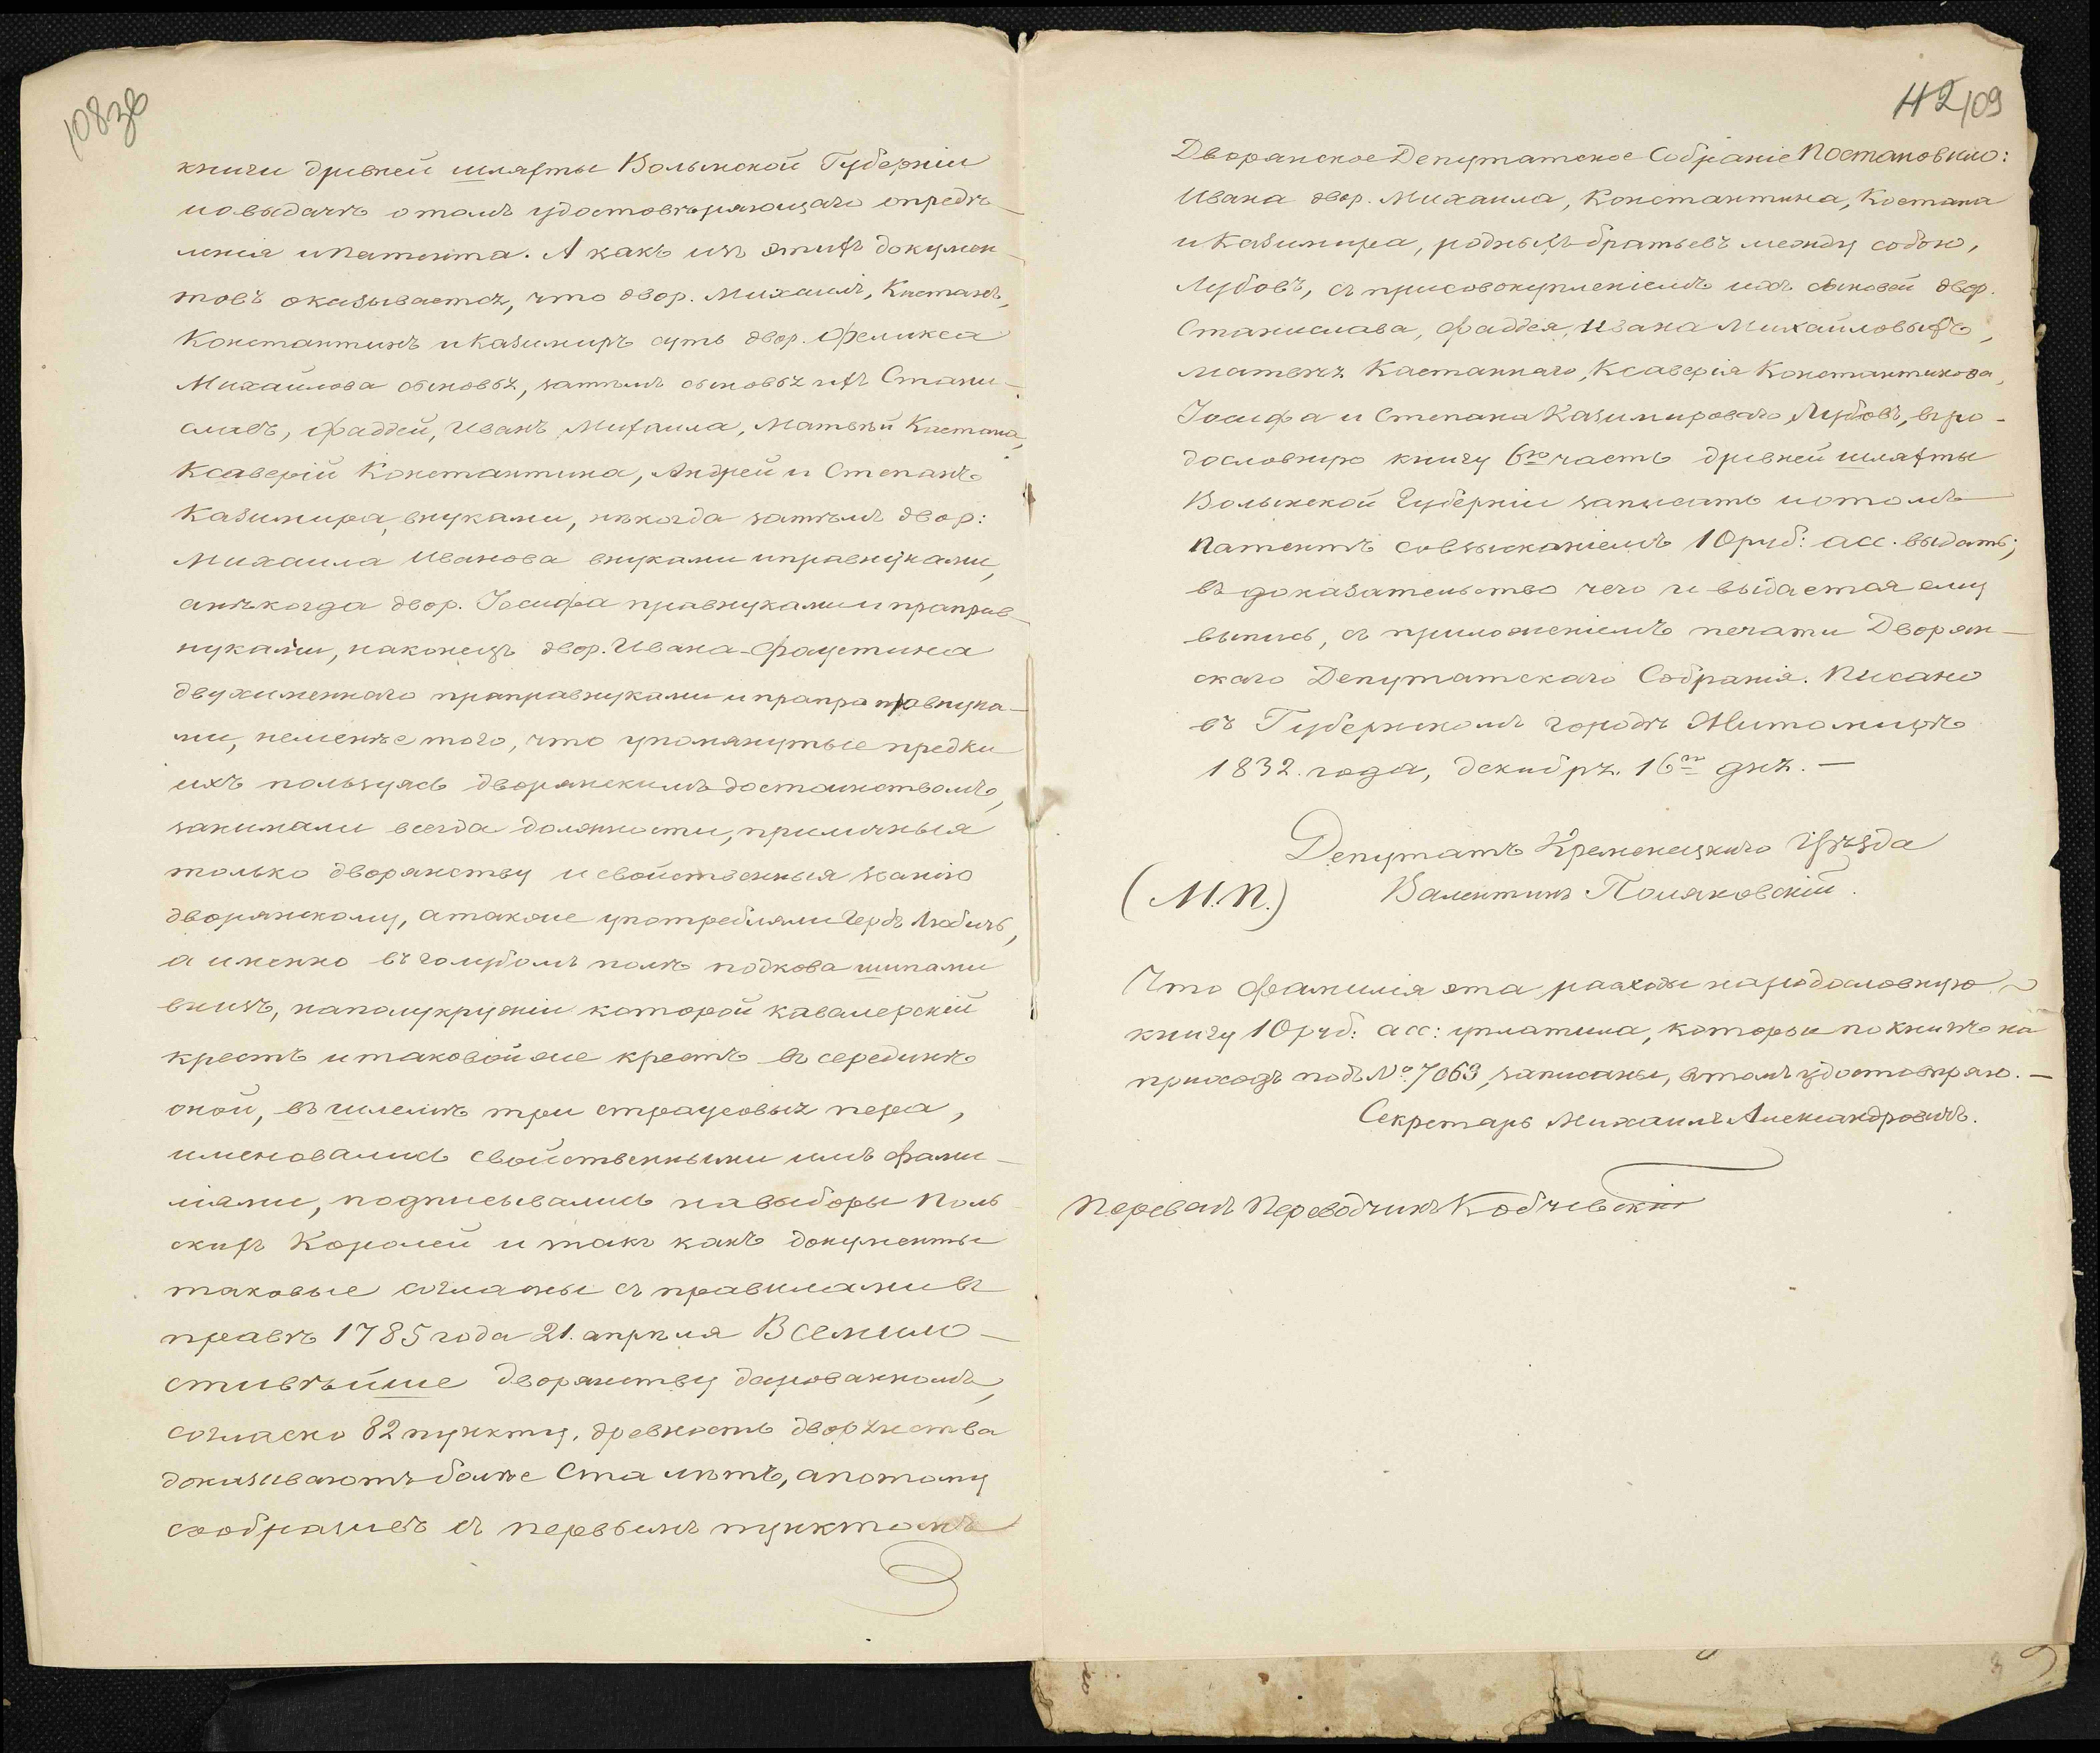 108зв
книги древней шляхты Волынской Губерніи
и о выдачѣ о томъ удостовѣряющаго опредѣ-
ленія и патента. А какъ изъ этихъ докумен-
товъ оказывается, что двор. Михаилъ, Каетанъ,
Константинъ и Казимиръ суть двор. Феликса
Михайлова сыновья, затѣмъ сыновья ихъ Стани-
славъ, Фаддей, Иванъ Михаила, Матвѣй Каетана,
Ксаверій Константина, Андрей и Степанъ
Казимира внуками, нѣкогда затѣмъ двор:
Михаила Иванова внуками и правнуками,
а нѣкогда двор. Іосифа правнуками и праправ-
нуками, наконецъ двор. Ивана-Фаустина
двухименнаго праправнуками и прапраправнука-
ми, неменѣе того, что упомянутые предки
ихъ пользуясь дворянскимъ достоинствомъ,
занимали всегда должности, приличныя
только дворянству и свойственныя званію
дворянскому, а также употребляли Гербъ Любичъ,
а именно въ голубомъ полѣ подкова шипами
внизъ, на полукружіи которой кавалерскій
крестъ и таковой же крестъ въ серединѣ
оной, въ шлемѣ три страусовыхъ пера,
именовались свойственными имъ фами-
ліями, подписывались на выборы Поль
скихъ Королей и такъ какъ документы
таковые согласны съ правилами въ
правѣ 1785 года 21. апрѣля Всемило-
стивѣйше дворянству дарованномъ,
согласно 82 пункту, древность дворянства
доказываютъ болѣе Ста лѣтъ, а потому
сообразивъ съ первымъ пунктомъ
42 109
Дворянское Депутатское Собраніе Постановило:
Ивана двор. Михаила, Константина, Каетана
и Казимира, родныхъ братьевъ между собою,
Лубовъ, съ присовокупленіемъ ихъ сыновей двор.
Станислава, Фаддея, Ивана Михайловыхъ,
Матвѣя Каетаннаго, Ксаверія Константинова,
Іосифа и Степана Казимироваго Лубовъ, въ ро-
дословную книгу 6ю часть древней шляхты
Волынской Губерніи записать и о томъ
патентъ со взысканіемъ 10 руб: асс. выдать;
въ доказательство чего и выдается ему
выпись, съ приложеніемъ печати Дворян-
скаго Депутатскаго Собранія. Писано
въ Губернскомъ городѣ Житомирѣ
1832. года, декабря. 16го дня. —
Депутатъ Кременецкаго Уѣзда
(М.П.) Валентинъ Поляковскій.
Что фамилія эта на расходы на родословную
книгу 10 руб: асс: уплатила, которые по книгѣ на
приходъ подъ № 7063, записаны, въ томъ удостовѣряю. —
Секретарь Михаилъ Александровичъ.
Перевелъ Переводчикъ